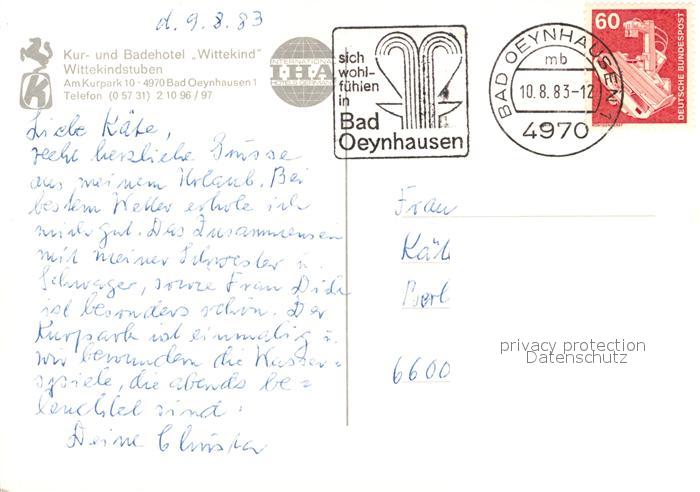 d. 9.8.83
Kur- und Badehotel „Wittekind“
Wittekindstuben
Am Kurpark 10 · 4970 Bad Oeynhausen 1
Telefon (0 57 31) 2 10 96 / 97
INTERNATIONAL
IHA
sich
wohl-
fühlen
in
Bad
Oeynhausen
BAD OEYNHAUSEN 1
mb
10.8.83-12
4970
60
DEUTSCHE BUNDESPOST
Liebe Käte,
recht herzliche Grüsse
aus meinem Urlaub. Bei
bestem Wetter erhole ich
mich gut. Das Zusammensein
mit meiner Schwester u.
Schwager, sowie Frau
ist besonders schön. Der
Kurpark ist einmalig u.
wir bewundern die Wasser=
spiele, die abends be=
leuchtet sind.
Deine Christa
Frau
Kät
6600
privacy protection
Datenschutz